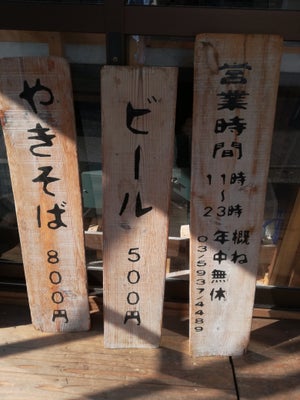 営業時間
11時～23時
概ね年中無休
03/5937/4489
ビール
500円
やきそば
800円